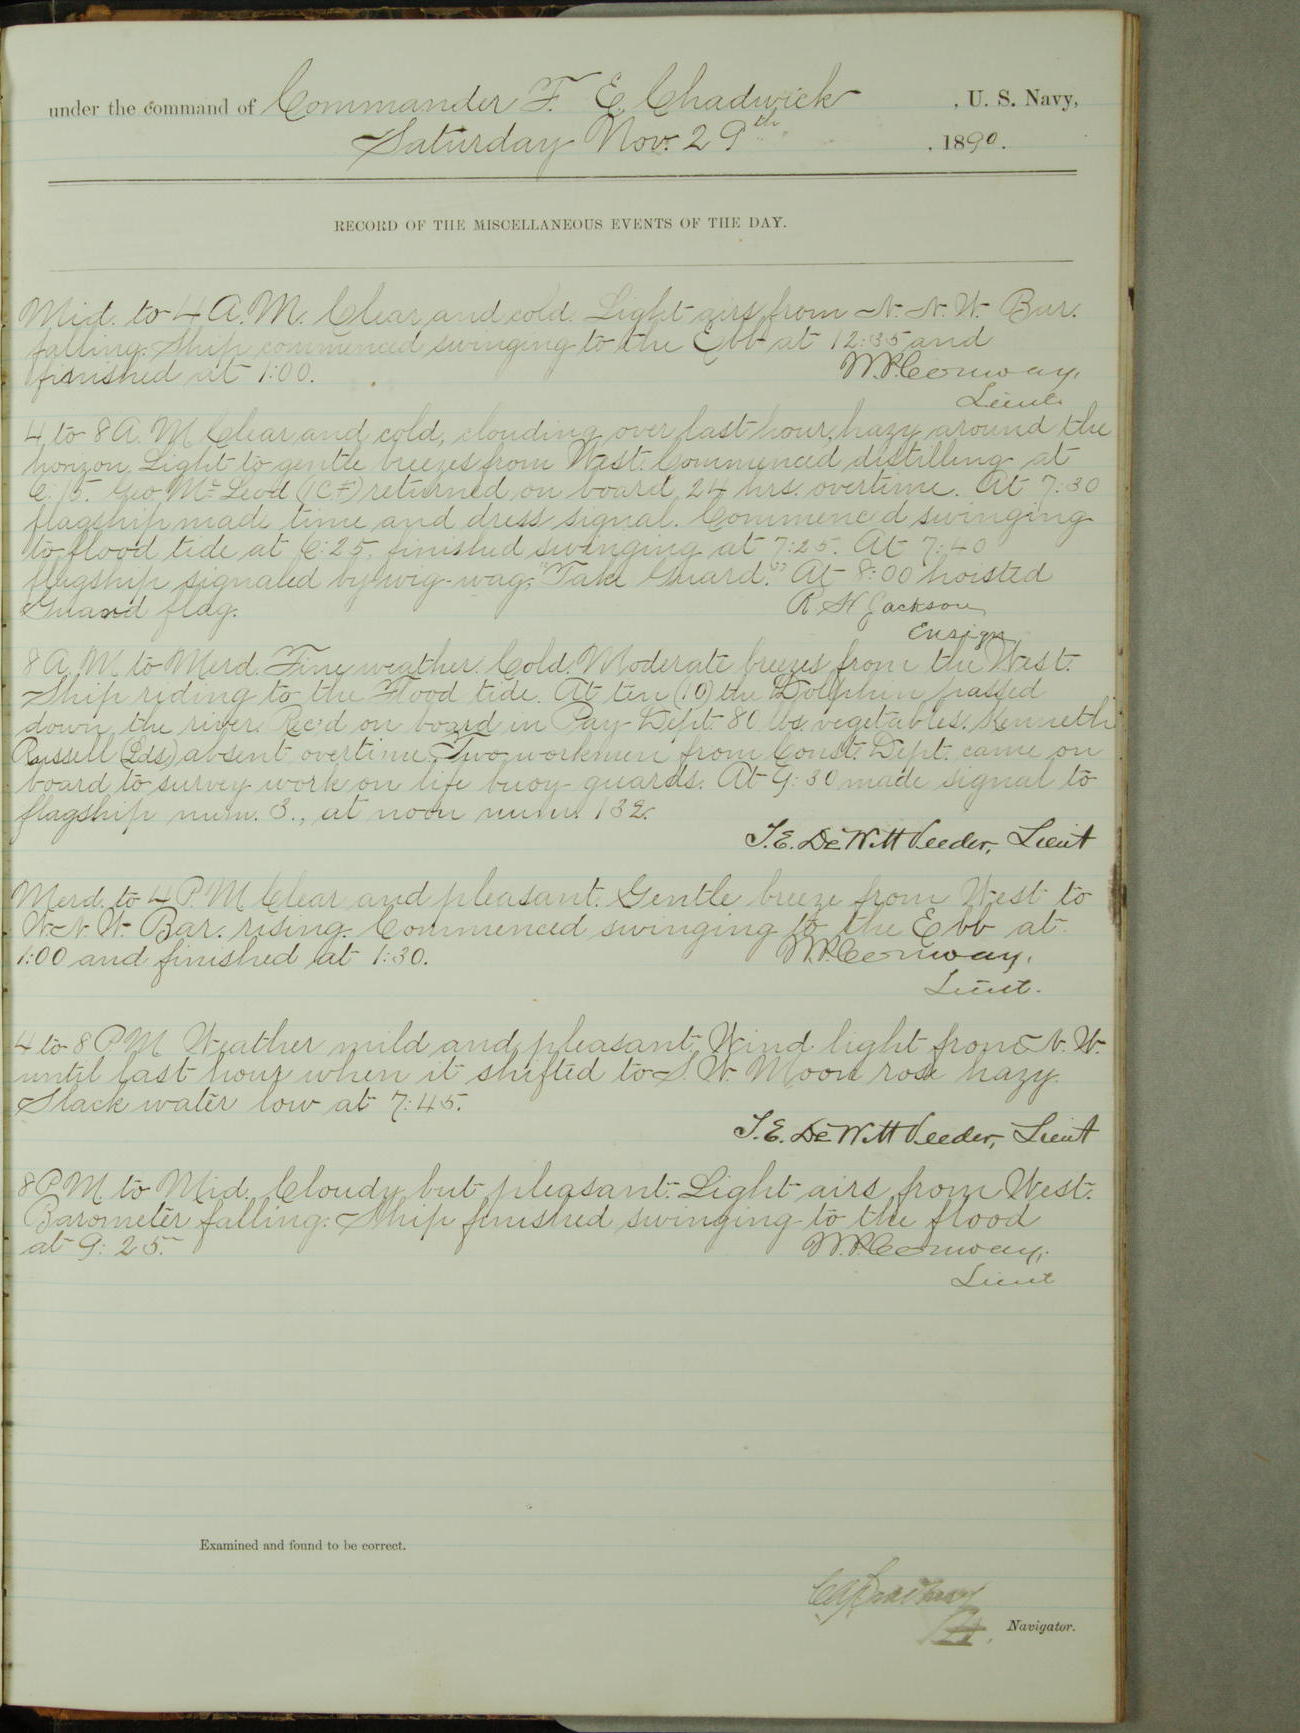 under the command of Commander F. E. Chadwick, U. S. Navy,
Saturday Nov. 29th, 1890.
RECORD OF THE MISCELLANEOUS EVENTS OF THE DAY.
Mid. to 4 A.M. Clear and cold. Light airs from N. N. W. Bar.
falling. Ship commenced swinging to the Ebb at 12:35 and
finished at 1:00. W. P. Conway,
Lieut.
4 to 8 A. M Clear and cold, clouding over last hour, hazy around the
horizon. Light to gentle breezes from West. Commenced distilling at
6:15. Geo Mc Leod (1CF) returned on board, 24 hrs. overtime. At 7:30
flagship made time and dress signal. Commenced swinging
to flood tide at 6:25. finished swinging at 7:25. At 7:40
flagship signaled by wig-wag; "Take Guard." At 8:00 hoisted
Guard flag. R. H Jackson
Ensign
8 A. M to Merd. Fine weather. Cold. Moderate breezes from the West.
Ship riding to the Flood tide. At ten (10) the Dolphin passed
down the river. Rec'd on board in Pay Dept. 80 lbs. vegetables. Kenneth
Russell (Lds) absent overtime. Two workmen from Const. Dept. came on
board to survey work on life buoy guards. At 9:30 made signal to
flagship num. 3., at noon num. 132.
T. E. De Witt Veeder, Lieut
Merd. to 4 P. M Clear and pleasant. Gentle breeze from West to
W. N. W. Bar. rising. Commenced swinging to the Ebb at
1:00 and finished at 1:30. W. P. Conway,
Lieut.
4 to 8 P M Weather mild and pleasant. Wind light from N. W.
until last hour when it shifted to S. W. Moon rose hazy.
Slack water low at 7:45.
T. E. De Witt Veeder, Lieut
8 P M to Mid. Cloudy but pleasant. Light airs from West.
Barometer falling. Ship finished swinging to the flood
at 9:25. W. P. Conway,
Lieut
Examined and found to be correct.
Navigator.